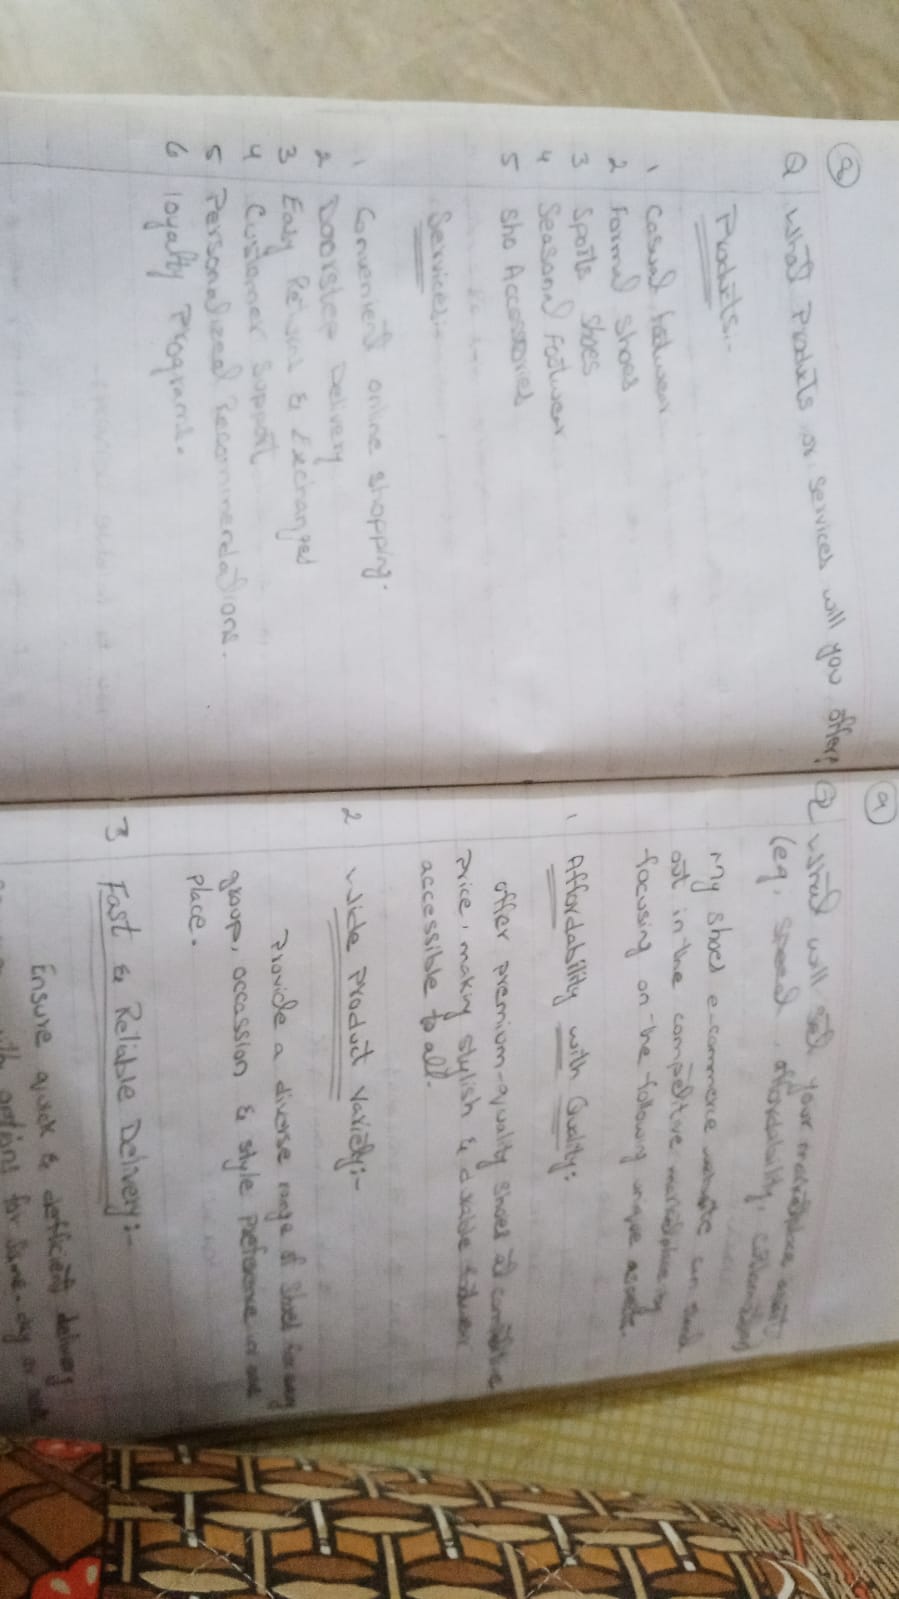 8
Q What Products or services will you offer?
Products:-
1 Casual footwear
2 Formal Shoes
3 Sports Shoes
4 Seasonal Footwear
5 Sho Accessories
Services:-
1 Convenient online shopping.
2 Doorstep Delivery
3 Easy Returns & Exchanges
4 Customer Support
5 Personalized Recommendations.
6 loyalty Programs.
9
Q What will set your marketplace
(eg, speed, affordability,
My Shoes e-commerce website can stand
out in the competitive marketplace by
focusing on the following unique
1 Affordability with Quality:
offer premium-quality shoes at competitive
Price, making stylish & durable footwear
accessible to all.
2 Wide Product Variety:-
Provide a diverse range of Shoes for every
group, occassion & style Preference in one
place.
3 Fast & Reliable Delivery:-
Ensure quick & defficient delivery
options for same-day or